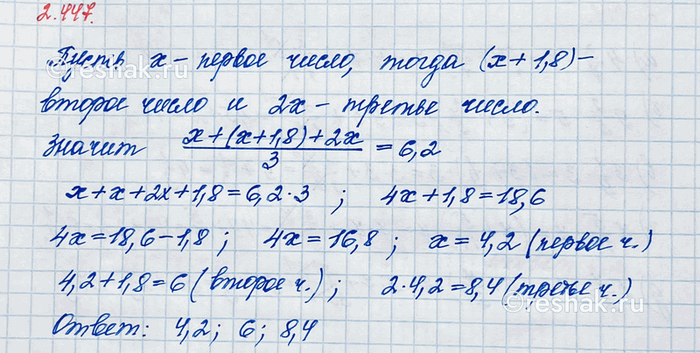 2.447.
Пусть x - первое число, тогда (x+1,8) -
второе число и 2x - третье число.
Значит (x+(x+1,8)+2x)/3 = 6,2
x+x+2x+1,8=6,2·3 ; 4x+1,8=18,6
4x=18,6-1,8 ; 4x=16,8 ; x=4,2 (первое ч.)
4,2+1,8=6 (второе ч.) ; 2·4,2=8,4 (третье ч.)
Ответ: 4,2; 6; 8,4